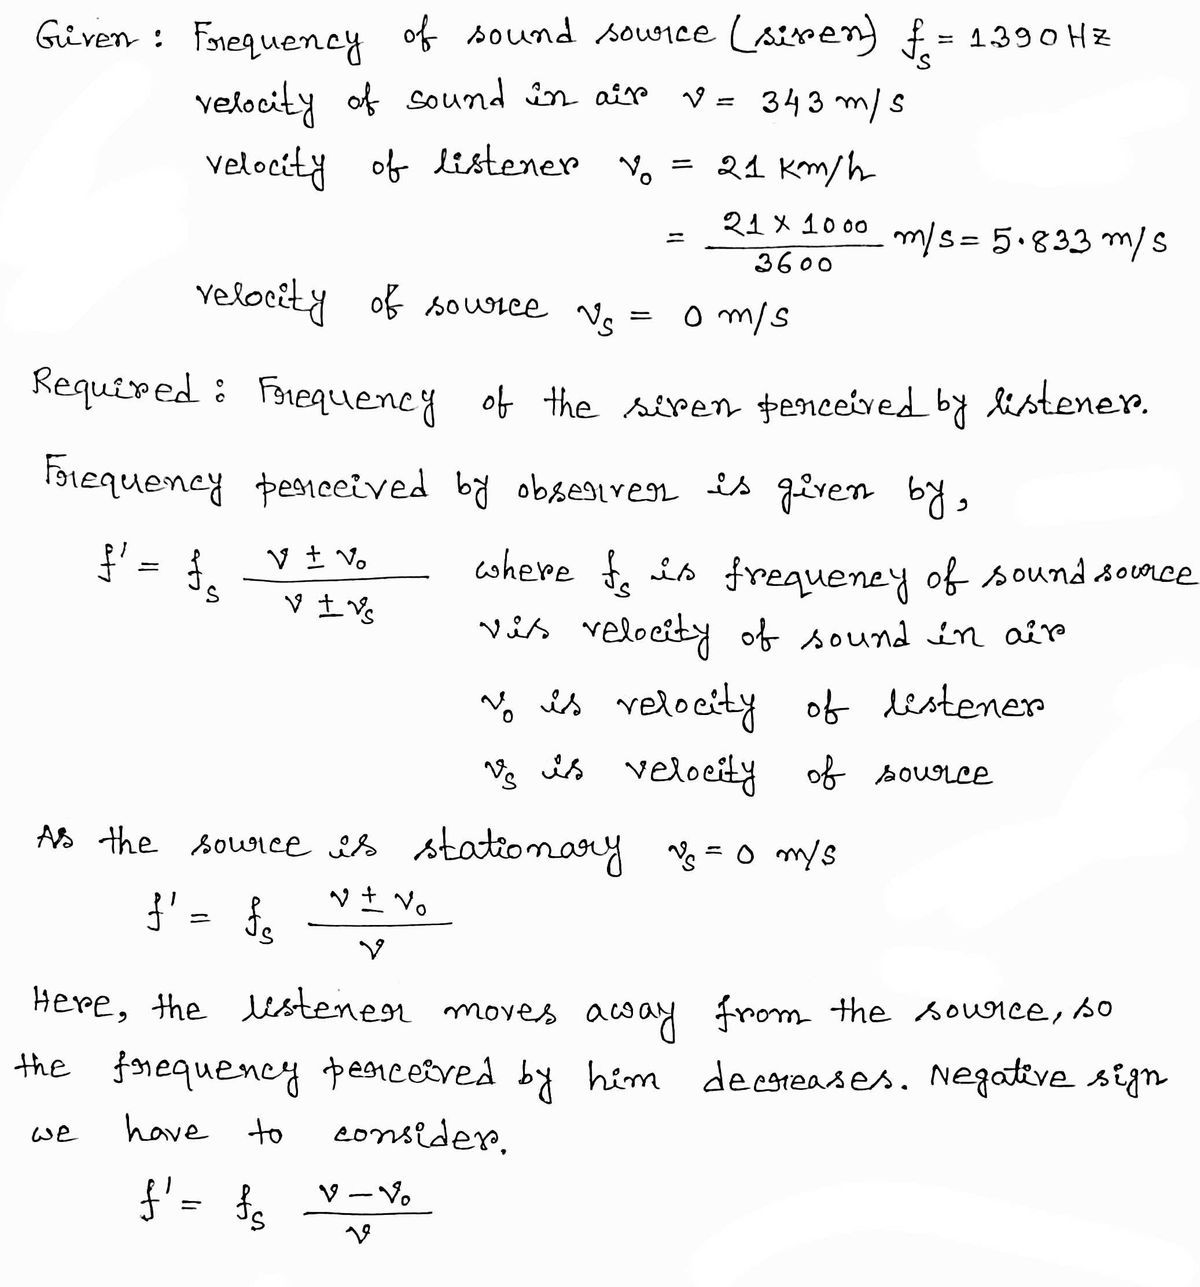 Given : Frequency of sound source (siren) fₛ = 1390 Hz
velocity of sound in air v = 343 m/s
velocity of listener v₀ = 21 km/h
= 21 × 1000 / 3600 m/s = 5.833 m/s
velocity of source vₛ = 0 m/s
Required : Frequency of the siren perceived by listener.
Frequency perceived by observer is given by,
f' = fₛ (v ± v₀) / (v ± vₛ) where fₛ is frequency of sound source
v is velocity of sound in air
v₀ is velocity of listener
vₛ is velocity of source
As the source is stationary vₛ = 0 m/s
f' = fₛ (v ± v₀) / v
Here, the listener moves away from the source, so
the frequency perceived by him decreases. Negative sign
we have to consider.
f' = fₛ (v − v₀) / v